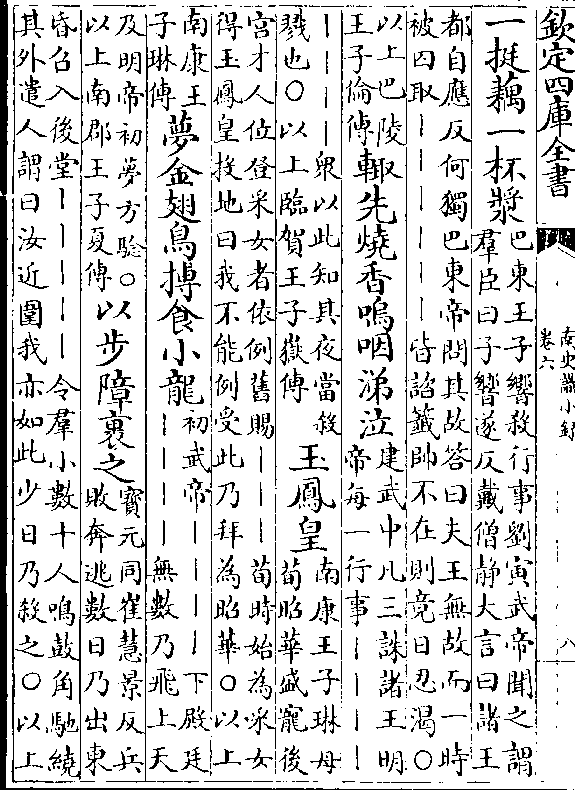 欽定四庫全書
南史識小録
卷六
八
一挺藕一杯漿
巴東王子響殺行事劉寅武帝聞之謂
羣臣曰子響遂反戴僧静大言曰諸王
都自應反何獨巴東帝問其故答曰夫王無故而一時
被囚取丨丨丨丨丨丨皆諮籤帥不在則竟日忍渴○
以上巴陵
王子倫傳
輙先燒香嗚咽涕泣
建武中凡三誅諸王明
帝每一行事丨丨丨丨
丨丨丨丨衆以此知其夜當殺
戮也○以上臨賀王子嶽傳
玉鳳皇
南康王子琳母
荀昭華盛寵後
宫才人位登采女者依例舊賜丨丨丨荀時始為采女
得玉鳳皇投地曰我不能例受此乃拜為昭華○以上
南康王
子琳傳
夢金翅鳥搏食小龍
初武帝丨丨丨丨下殿廷
丨丨丨丨無數乃飛上天
及明帝初夢方驗○
以上南郡王子夏傳
以步障裹之
寳元同崔慧景反兵
敗奔逃數日乃出東
昏召入後堂丨丨丨丨丨令羣小數十人鳴鼓角馳繞
其外遣人謂曰汝近圍我亦如此少日乃殺之○以上